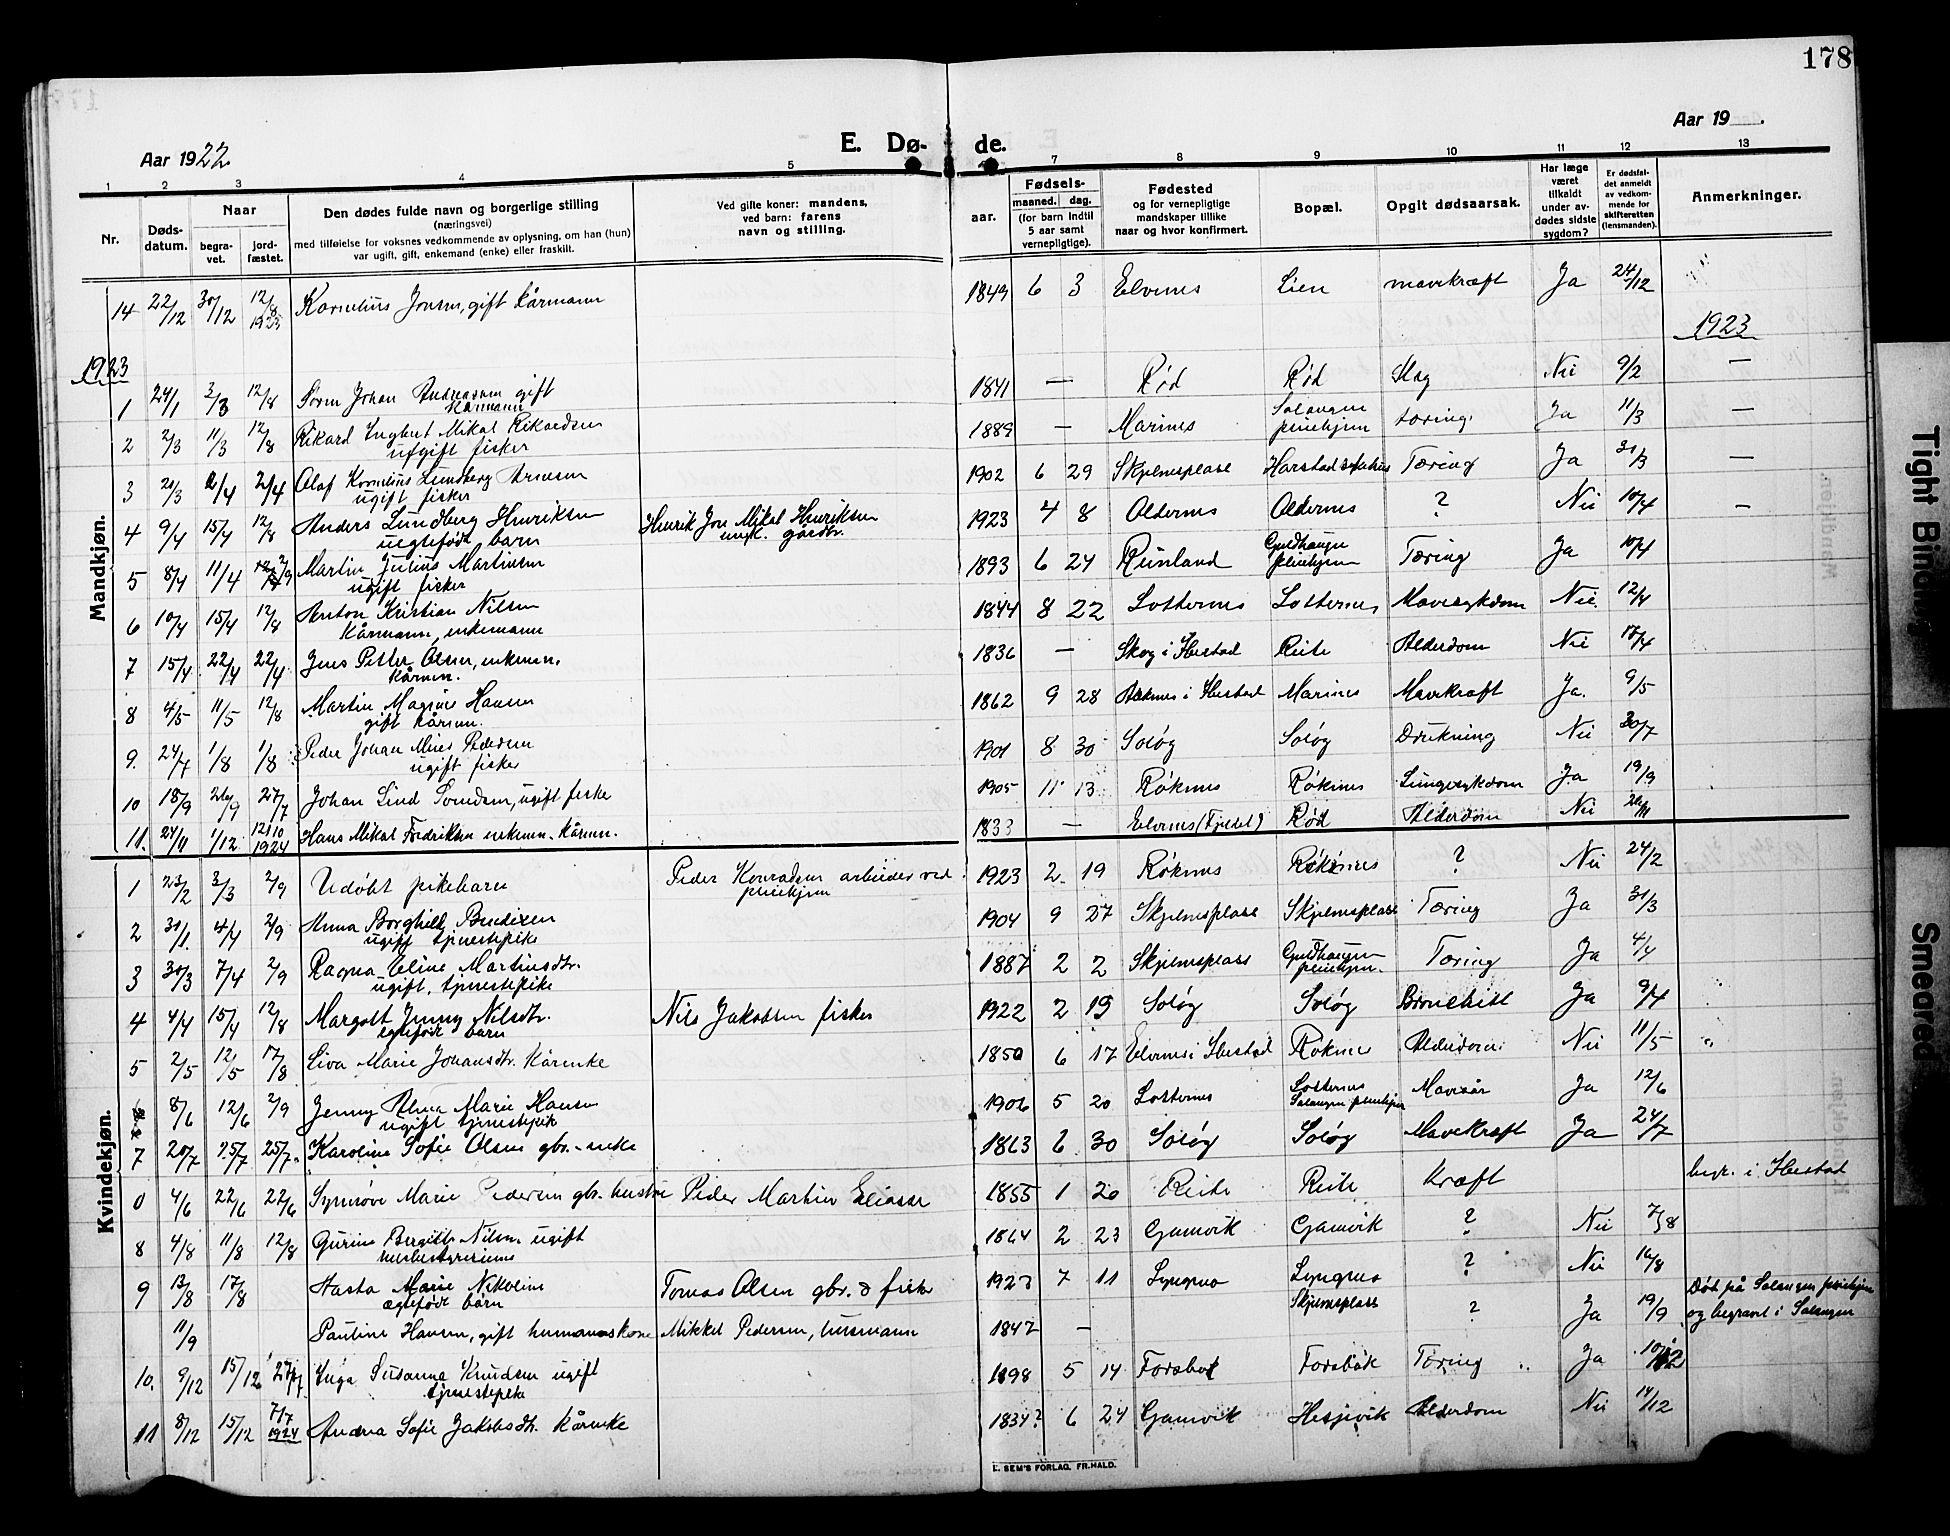 178
Aar 1922.
E. Dø- de.
Aar 19 .
1 2 3 4 5 7 8 9 10 11 12 13
Nr.
Døds-
datum.
Naar
begra-
vet.
jord-
fæstet.
Den dødes fulde navn og borgerlige stilling
(næringsvei)
med tilføielse for voksnes vedkommende av oplysning, om han (hun)
var ugift, gift, enkemand (enke) eller fraskilt.
Ved gifte koner: mandens,
ved barn: farens
navn og stilling.
aar.
Fødsels-
maaned. dag.
(for barn indtil
5 aar samt
vernepligtige).
Fødested
og for vernepligtige
mandskaper tillike
naar og hvor konfirmert.
Bopæl.
Opgit dødsaarsak.
Har læge
været
tilkaldt
under av-
dødes sidste
sygdom?
Er dødsfal-
det anmeldt
av vedkom-
mende for
skifteretten
(lensmanden).
Anmerkninger.
Mandkjøn.
14 22/12 30/12 12/8 1923 Kornelius Jonsen, gift kårmann 1849 6 3 Elvenes Lien mavekræft Ja 24/12
1923 1923
1 24/1 3/3 12/8 Søren Johan Andreassen gift
kårmann 1841 — Rød Rød Slag Nei 9/2 —
2 2/3 11/3 12/8 Rikard Ingbert Mikal Rikardsen
ugift fisker 1889 — Marines Salangen
pleiehjem tæring Ja 11/3 —
3 21/3 2/4 2/4 Olaf Kornelius Lundberg Arnesen
ugift fisker 1902 6 29 Skjelnesplass Harstad sykehus Tæring Ja 31/3 —
4 9/4 15/4 12/8 Anders Lundberg Henriksen
uegtefødt barn Henrik Jon Mikal Henriksen
ungk. gårdbr. 1923 4 8 Oldernes Oldernes ? Nei 10/4 —
5 8/4 11/4 2/9 Martin Julius Martinsen
ugift fisker 1893 6 24 Reinland Guldhaugen
pleiehjem Tæring Ja 10/4
6 10/4 15/4 12/8 Anton Kristian Nilsen
kårmann, enkemann 1844 8 22 Lotternes Lotternes Mavesykdom Nei. 12/4
7 15/4 22/4 22/4 Jens Petter Olsen, enkem.
kårm. 1836 — Skog i Ibestad Reite Alderdom Nei 17/4
8 4/5 11/5 12/8 Martin Magnus Hansen
gift kårm. 1862 9 28 i Ibestad Marines Mavekræft Ja. 9/5
9. 24/7 1/8 1/8 Peder Johan Mines Pedersen
ugift fisker 1901 8 30 Soløy Soløy Drukning Nei 30/7
10 18/9 26/9 27/7 Johan Lind, ugift fisker 1905 11 13 Røknes Røknes Lungesykdom Ja 19/9
11. 24/11 1/12 12/10 1924 Hans Mikal Fredriksen enkem. kårm. 1833 — Elvenes (Fjeldet) Rød Alderdom Nei 26/11
Kvindekjøn.
1 23/2 3/3 2/9 Udøbt pikebarn Peder Konradsen arbeider ved
pleiehjem 1923 2 19 Røknes Røknes ? Nei 24/2
2 31/1. 4/4 2/9 Anna Borghild Bendixen
ugift tjenestepike 1904 9 27 Skjelnesplass Skjelnesplass Tæring Ja 31/3
3 30/3 7/4 2/9 Ragna Eline Martinsdtr.
ugift, tjenestepike 1887 2 2 Skjelnesplass Guldhaugen
pleiehjem. Tæring Ja 4/4
4 4/4 15/4 12/8 Margott Jenny Nilsdtr.
egtefødt barn Nils Jakobsen fisker 1922 2 19 Soløy Soløy Bronchitt Ja 9/4
5 2/5 12/5 17/8 Liva Marie Johansdtr. Kårenke 1850 6 17 Elvenes i Ibestad Røknes Alderdom Nei 11/5
8/6 12/6 2/9 Jenny Alma Marie Hansen
ugift tjenestepike 1906 5 20 Lotternes Lotternes
Salangen pleiehjem Mavesår Ja 12/6
7 20/7 25/7 25/7. Karoline Sofie Olsen gbr.-enke 1863 6 30 Soløy Soløy Mavekræft Ja 24/7
0 4/6 22/6 22/6 Synnøve Marie Pedersen gbr. hustru Peder Martin Eliassen 1855 1 20 Reite Reite Kræft begr. i Ibestad
8 4/8 11/8 12/8 Gurine Bergitte Nilsen ugift
husbestyrerinne 1864 2 23 Gamvik Gamvik ? Nei 7/8
9 13/8 17/8 Hasta Marie Nikoline
egtefødt barn Tomas Olsen gbr. & fisker 1923 7 11 Lyngmo Lyngmo ? Nei 16/8
11/9 Pauline Hansen, gift husmannskone Mikkel Pedersen, husmann 1847 — Skjelnesplass ? Ja 19/9 Død på Salangen pleiehjem
og begravet i Salangen
10. 9/12 15/12 27/7 Inga Susanna Knudsen ugift
tjenestepike 1898 5 14 Forsbak Forsbak Tæring Ja 10/12
11 8/12 15/12 7/7 1924 Andrea Sofie Jakobsdtr. Kårenke 1834? 6 24 Gamvik Hesjevik Alderdom Nei 14/12
L. SEM'S FORLAG, FR.HALD.
Tight Binding
Smeared